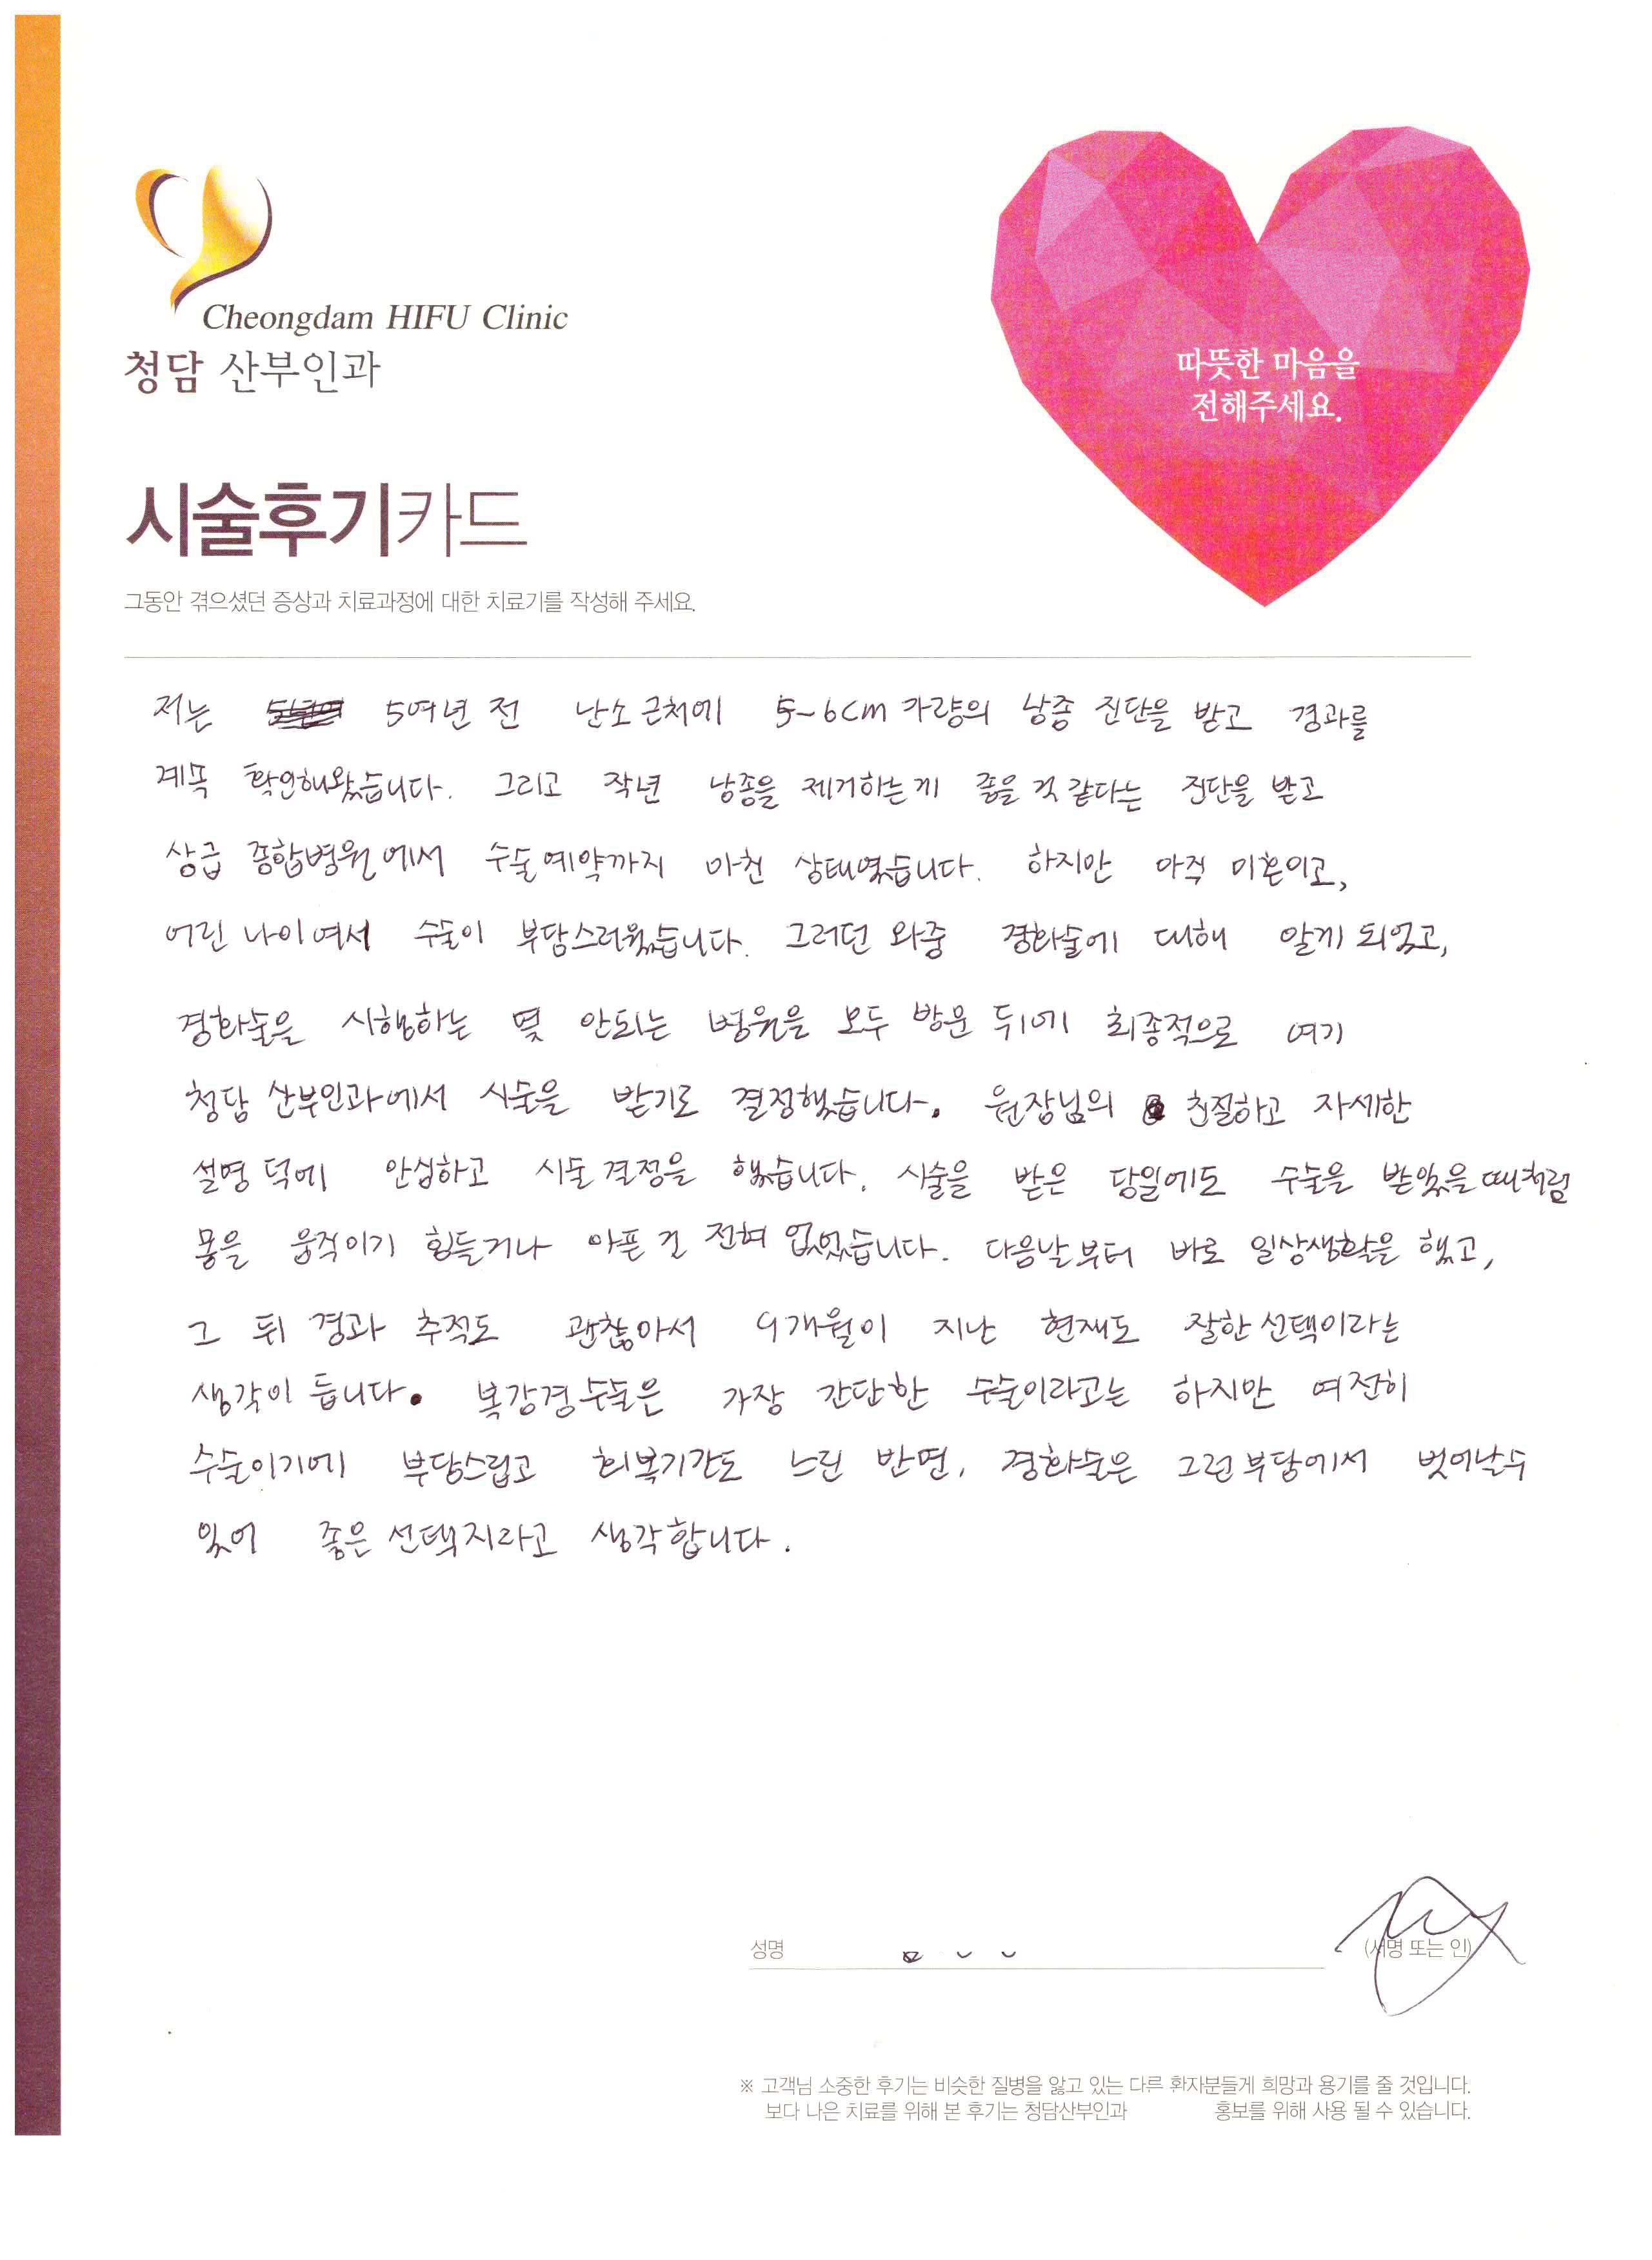 Cheongdam HIFU Clinic
청담 산부인과
따뜻한 마음을
전해주세요.
시술후기카드
그동안 겪으셨던 증상과 치료과정에 대한 치료기를 작성해 주세요.
저는 5여년 전 난소 근처에 5~6cm 가량의 낭종 진단을 받고 경과를
계속 확인해왔습니다. 그리고 작년 낭종을 제거하는게 좋을 것 같다는 진단을 받고
상급 종합병원에서 수술예약까지 마친 상태였습니다. 하지만 아직 미혼이고,
어린 나이여서 수술이 부담스러웠습니다. 그러던 와중 경화술에 대해 알게 되었고,
경화술을 시행하는 몇 안되는 병원을 모두 방문 뒤에 최종적으로 여기
청담 산부인과에서 시술을 받기로 결정했습니다. 원장님의 친절하고 자세한
설명 덕에 안심하고 시술 결정을 했습니다. 시술을 받은 당일에도 수술을 받았을 때처럼
몸을 움직이기 힘들거나 아픈 건 전혀 없었습니다. 다음날부터 바로 일상생활을 했고,
그 뒤 경과 추적도 괜찮아서 9개월이 지난 현재도 잘한 선택이라는
생각이 듭니다. 복강경수술은 가장 간단한 수술이라고는 하지만 여전히
수술이기에 부담스럽고 회복기간도 느린 반면, 경화술은 그런 부담에서 벗어날수
있어 좋은 선택지라고 생각합니다.
성명 (서명 또는 인)
※ 고객님 소중한 후기는 비슷한 질병을 앓고 있는 다른 환자분들게 희망과 용기를 줄 것입니다.
보다 나은 치료를 위해 본 후기는 청담산부인과 홍보를 위해 사용 될 수 있습니다.